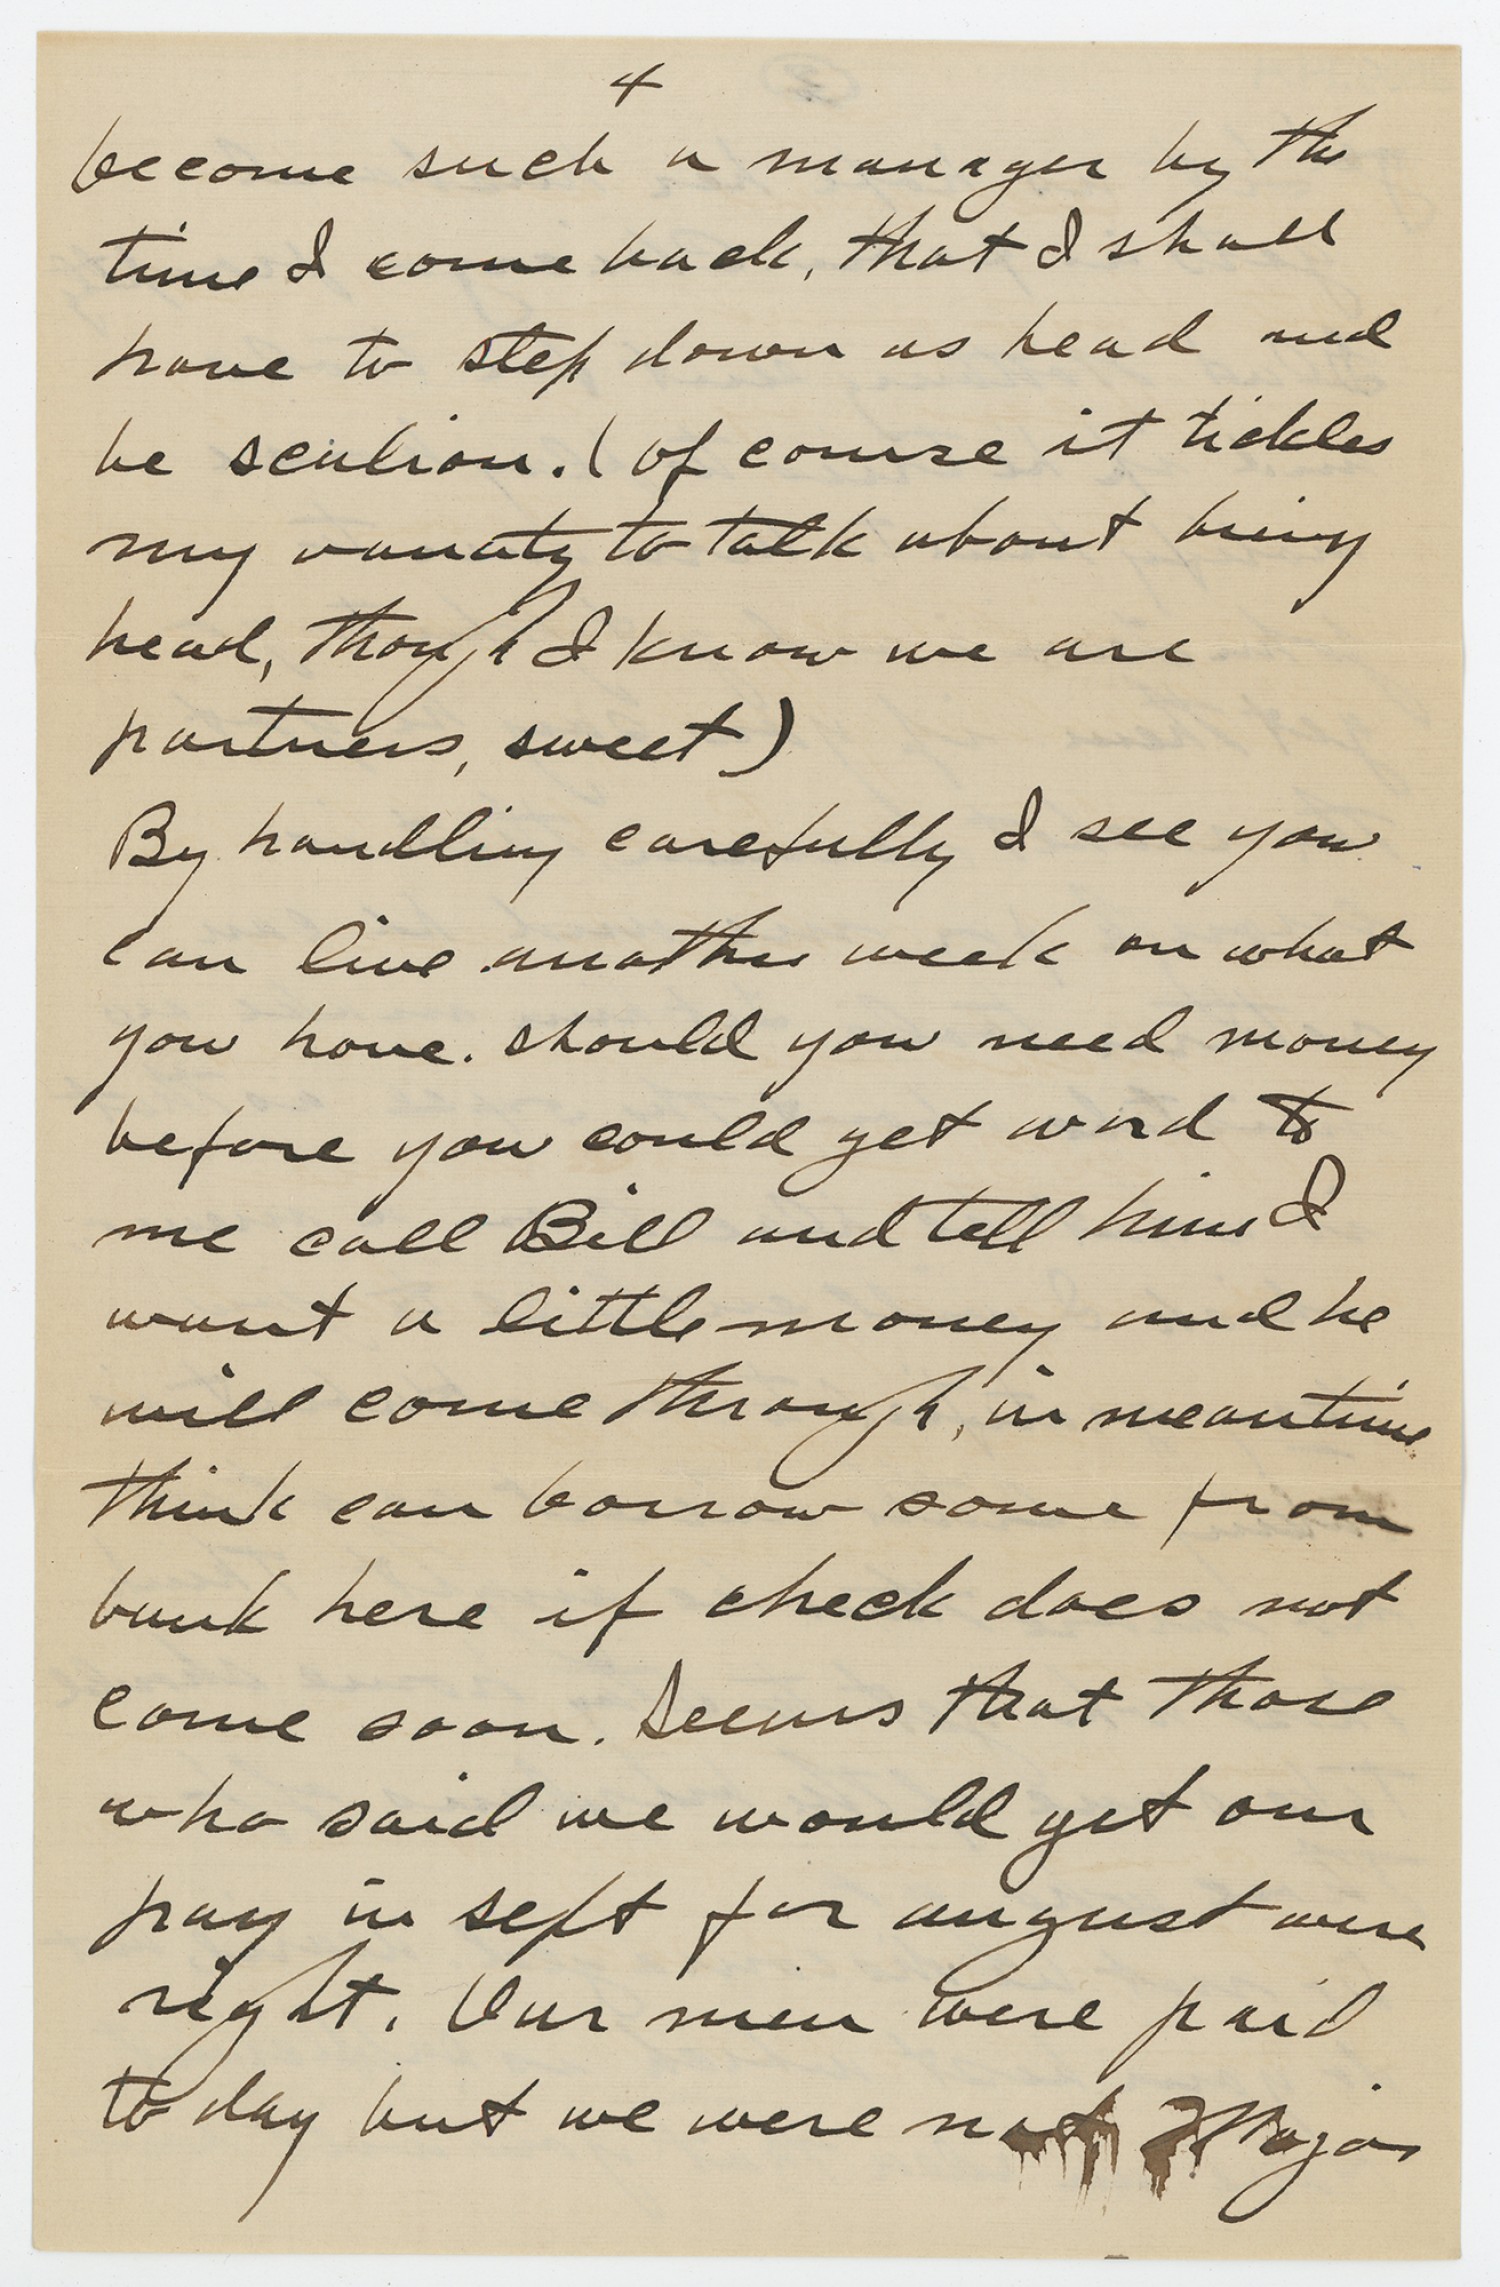 4
become such a manager by the
time I come back, that I shall
have to step down as head and
be scullion. (of course it tickles
my vanity to talk about being
head, though I know we are
partners, sweet)
By handling carefully I see you
can live another week on what
you have. should you need money
before you could get word to
me call Bill and tell him I
want a little money and he
will come through, in meantime
think can borrow some from
bank here if check does not
come soon. Seems that those
who said we would get our
pay in sept for august were
right. Our men were paid
to day but we were not Major